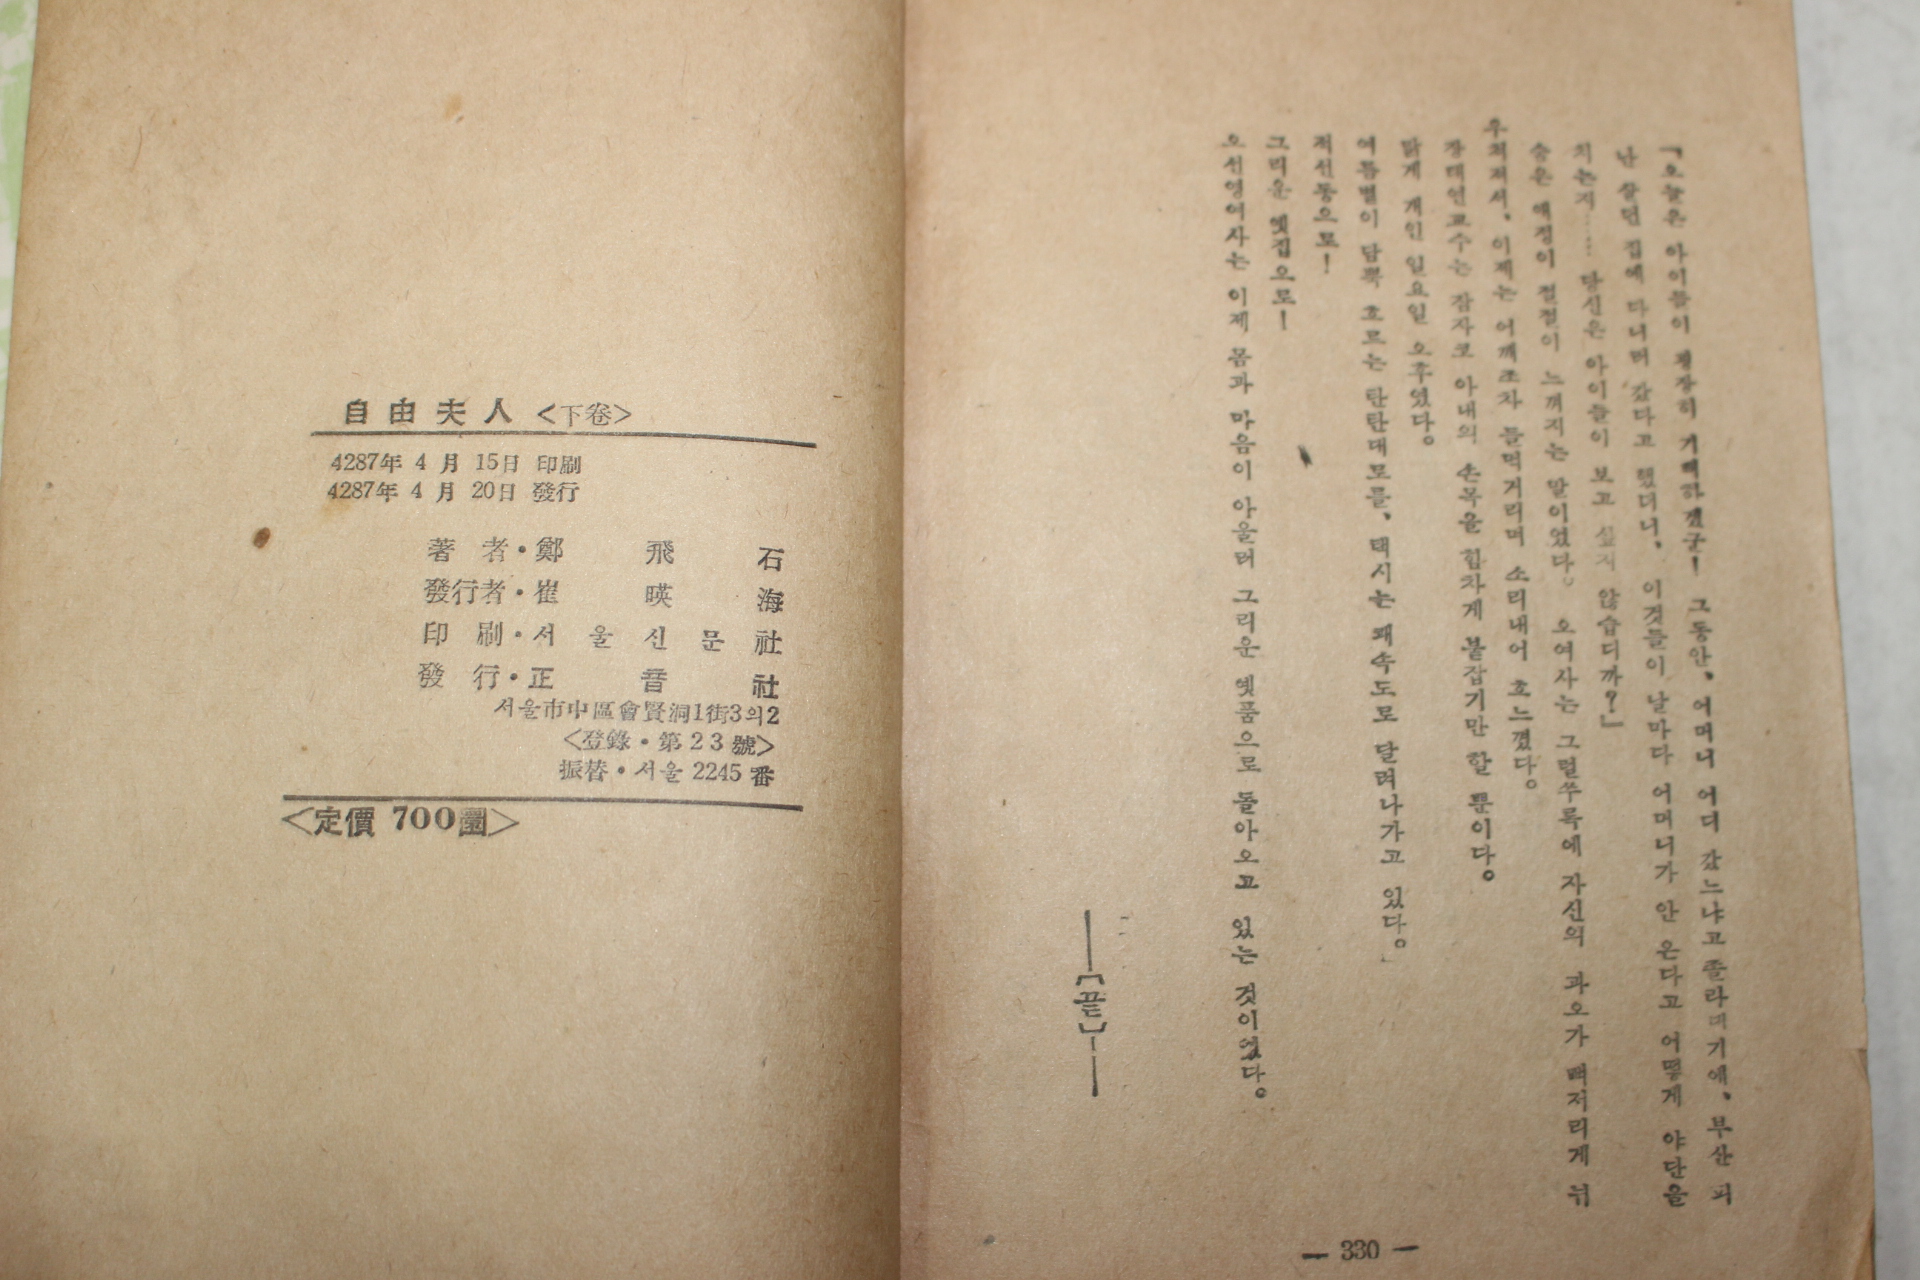 「오늘은 아이들이 굉장히 기뻐하겠군! 그동안, 어머니 어디 갔느냐고 졸라대기에, 부산 피
난 살던 집에 다니며 갔다고 했더니, 이것들이 날마다 어머니가 안 온다고 어떻게 야단을
치는지…… 당신은 아이들이 보고 싶지 않습디까?」
숭은 애정이 절절이 느껴지는 말이었다. 오여사는 그럴쑤록에 자신의 과오가 뼈저리게 뉘
우쳐져서, 이제는 어깨조차 들먹거리며 소리내어 흐느꼈다.
장태연교수는 잠자코 아내의 손목을 힘차게 붙잡기만 할 뿐이다.
맑게 개인 일요일 오후였다.
여름볕이 담뿍 흐르는 탄탄대로를, 택시는 쾌속도로 달려나가고 있다.
적선동으로!
그리운 옛집으로!
오선영여사는 이제 몸과 마음이 아울러 그리운 옛품으로 돌아오고 있는 것이었다.
——[끝]——
— 330 —
自由夫人 <下卷>
4287年 4月 15日 印刷
4287年 4月 20日 發行
著者・鄭飛石
發行者・崔暎海
印刷・서울신문社
發行・正音社
서울市中區會賢洞1街3의2
<登錄・第23號>
振替・서울 2245番
<定價 700圜>